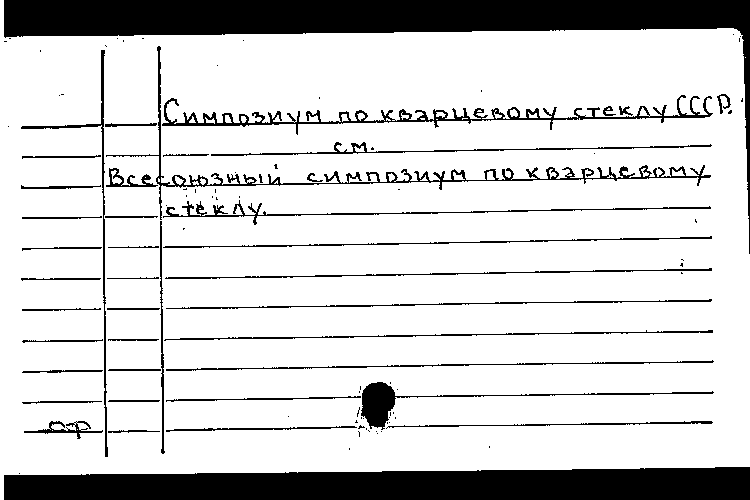 Симпозиум по кварцевому стеклу СССР.
см.
Всесоюзный симпозиум по кварцевому
стеклу.
ор